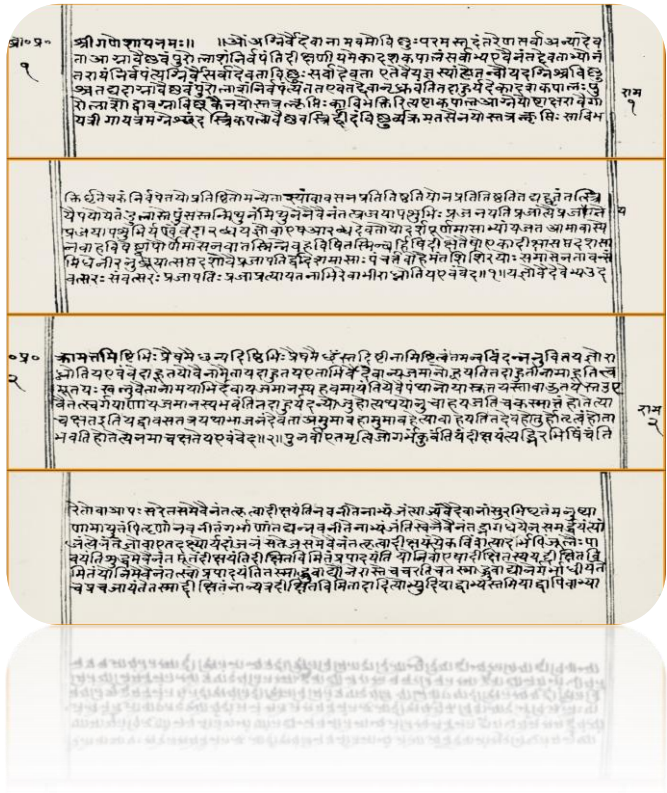 ब्रा॰प्र॰ १
श्रीगणेशायनमः॥ ॥ओंअग्निर्वैदेवानामवमोविष्णुःपरमस्तदंतरेणसर्वाअन्यादेव
ताआग्नावैष्णवंपुरोळाशंनिर्वपंतिदीक्षणीयमेकादशकपालंसर्वाभ्यएवैनंतद्देवताभ्योनं
तरायंनिर्वपंत्यग्निर्वैसर्वादेवताविष्णुःसर्वादेवता एतेवैयज्ञस्यांत्येतन्वौयदग्निश्चविष्णु
श्चतद्यदाग्नावैष्णवंपुरोळाशंनिर्वपंत्यंततएवतद्देवानृध्नुवंतितदाहुर्यदेकादशकपालःपु
रोळाशोद्वावग्नाविष्णूकैनयोस्तत्रक्लृप्तिःकाविभक्तिरित्यष्टाकपालआग्नेयोष्टाक्षरावैगा
यत्रीगायत्रमग्नेश्छंदस्त्रिकपालोवैष्णवस्त्रिर्हीदंविष्णुर्व्यक्रमतसैनयोस्तत्रक्लृप्तिःसाविभ
राम १
क्तिर्घृतेचरुंनिर्वपेतयोप्रतिष्ठितोमन्येतास्यांवावसनप्रतितिष्ठतियोनप्रतितिष्ठतितद्यद्घृतंतत्स्त्रि
यैपयोयेतंडुलास्तेपुंसस्तन्मिथुनंमिथुनेनैवैनंतत्प्रजयापशुभिःप्रजनयतिप्रजात्यैप्रजायते
प्रजयापशुभिर्यएवंवेदारब्धयज्ञोवाएषआरब्धदेवतोयोदर्शपूर्णमासाभ्यांयजतआमावास्ये
नवाहविषेष्ट्वापौर्णमासेनवातस्मिन्नेवहविषितस्मिन्बर्हिषिदीक्षेतैषोएकादीक्षासप्तदशसा
मिधेनीरनुब्रूयात्सप्तदशोवैप्रजापतिर्द्वादशमासाःपंचर्तवोहेमंतशिशिरयोःसमासेनतावान्सं
वत्सरःसंवत्सरःप्रजापतिःप्रजापत्यायतनाभिरेवाभीराध्नोतियएवंवेद॥१॥यज्ञोवैदेवेभ्यउद
॰प्र॰ २
क्रामत्तमिष्टिभिःप्रैषमैछन्यदिष्टिभिःप्रैषमैछंस्तदिष्टीनामिष्टित्वंतमन्वविंदन्ननुवित्तयज्ञोरा
ध्नोतियएवंवेदाहूतयोवैनामैतायदाहुतयएताभिर्वैदेवान्यजमानोह्वयतितदाहुतीनामाहुतित्व
मूतयःखलुवैतानामयाभिर्देवायजमानस्यहवमायंतियेवैपंथानोयास्रुतयस्तावाऊतयस्तउए
वैतत्स्वर्गयाणायजमानस्यभवंतितदाहुर्यदन्योजुहोत्यथयोनुचाहयजतिचकस्मात्तंहोतेत्या
चक्षतइतियद्वावसतत्रयथाभाजनंदेवताअमुमावहामुमावहेत्यावाहयतितदेवहोतुर्होतृत्वंहोता
भवतिहोतेत्येनमाचक्षतेयएवंवेद॥२॥पुनर्वाएतमृत्विजोगर्भंकुर्वंतियंदीक्षयंत्यद्भिरभिषिंचंति
राम २
रेतोवाआपःसरेतसमेवैनंतत्कृत्वादीक्षयंतिनवनीतेनाभ्यंजंत्याज्यंवैदेवानांसुरभिघृतंमनुष्या
णामायुतंपितॄणांनवनीतंगर्भाणांतद्यन्नवनीतेनाभ्यंजंतिस्वेनैवैनंतद्भागधेयेनसमर्धयंत्यां
जंत्येनंतेजोवाएतदक्ष्योर्यदांजनंसतेजसमेवैनंतत्कृत्वादीक्षयंत्येकविंशत्यादर्भपिंजूलैःपा
वयंतिशुद्धमेवैनंतत्पूतंदीक्षयंतिदीक्षितविमितंप्रपादयंतियोनिर्वाएषादीक्षितस्ययद्दीक्षितवि
मितंयोनिमेवैनंतत्स्वांप्रपादयंतितस्माद्ध्रुवाद्योनेरास्तेचचरतिचतस्माद्ध्रुवाद्योनेर्गर्भाधीयंते
चप्रचजायंतेतस्माद्दीक्षितंनान्यत्रदीक्षितविमितादादित्योभ्युदियाद्वाभ्यस्तमियाद्वापिवाभ्या